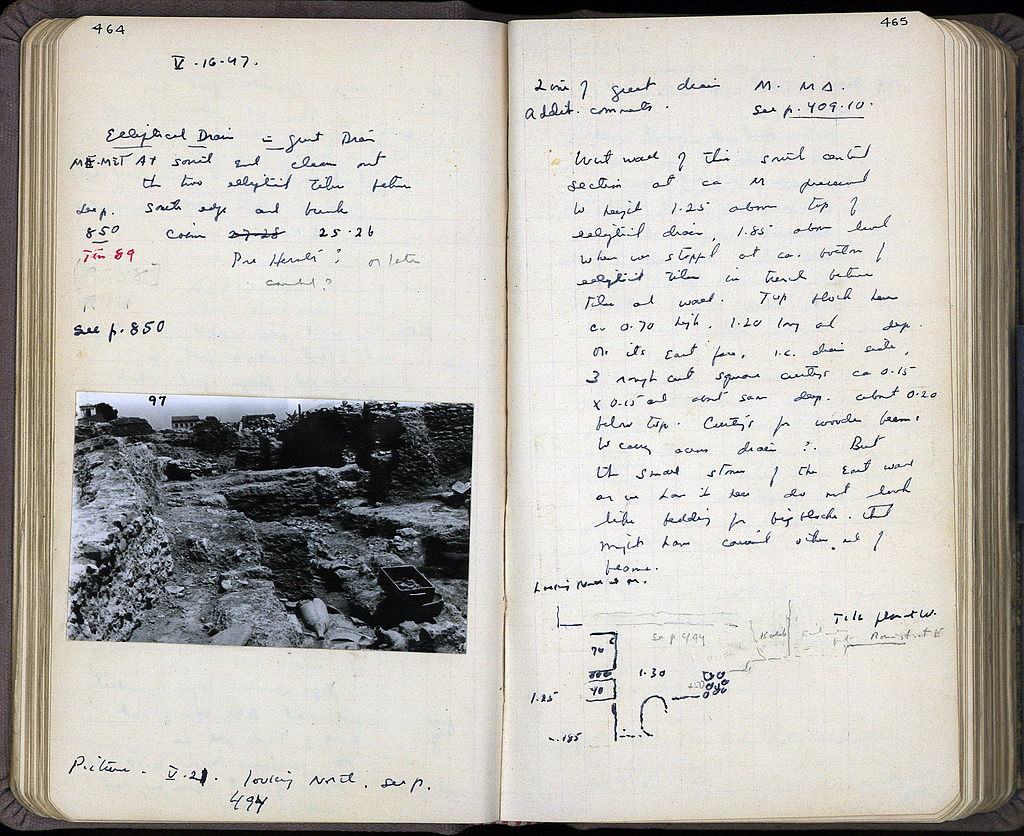 464
V-16-47.
Elliptical Drain = Great Drain
At south end clean out
the two elliptical tiles
see p. south edge and
850 Coins 27-28 25-26
Tin 89
Pre Herul? or later
see p. 850
97
Picture - V-21. looking North. see p.
494
465
Line of great drain M. MΔ.
Addit. comments. See p. 409-10.
West wall of this south central
section at ca M preserved
to height 1.25 above top of
elliptical drain, 1.85 above level
when we stopped at ca. bottom of
elliptical tiles in trench between
tiles and wall. Top block here
ca 0.70 high, 1.20 long and deep.
On its East face, i.e. drain side,
3 rough cut square cuttings ca 0.15
x 0.15 and about same deep. about 0.20
below top. Cuttings for wooden beams
to carry across drain?. But
the small stones of the East wall
as we have it here do not look
like bedding for big blocks. That
might have carried other end of
beams.
Looking North at M.
Tile plan at W.
see p. 494
70
1.30
40
1.25
-.185